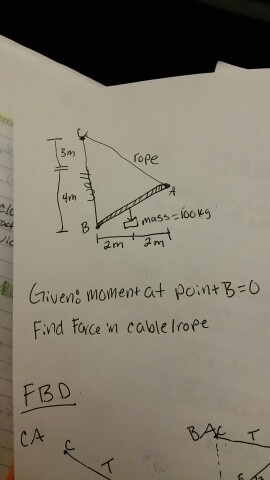 C
3m
rope
4m
A
mass=100kg
B
2m 2m
Given: moment at point B=0
Find Force in cable/rope
FBD
CA
C
T
BA
C
T